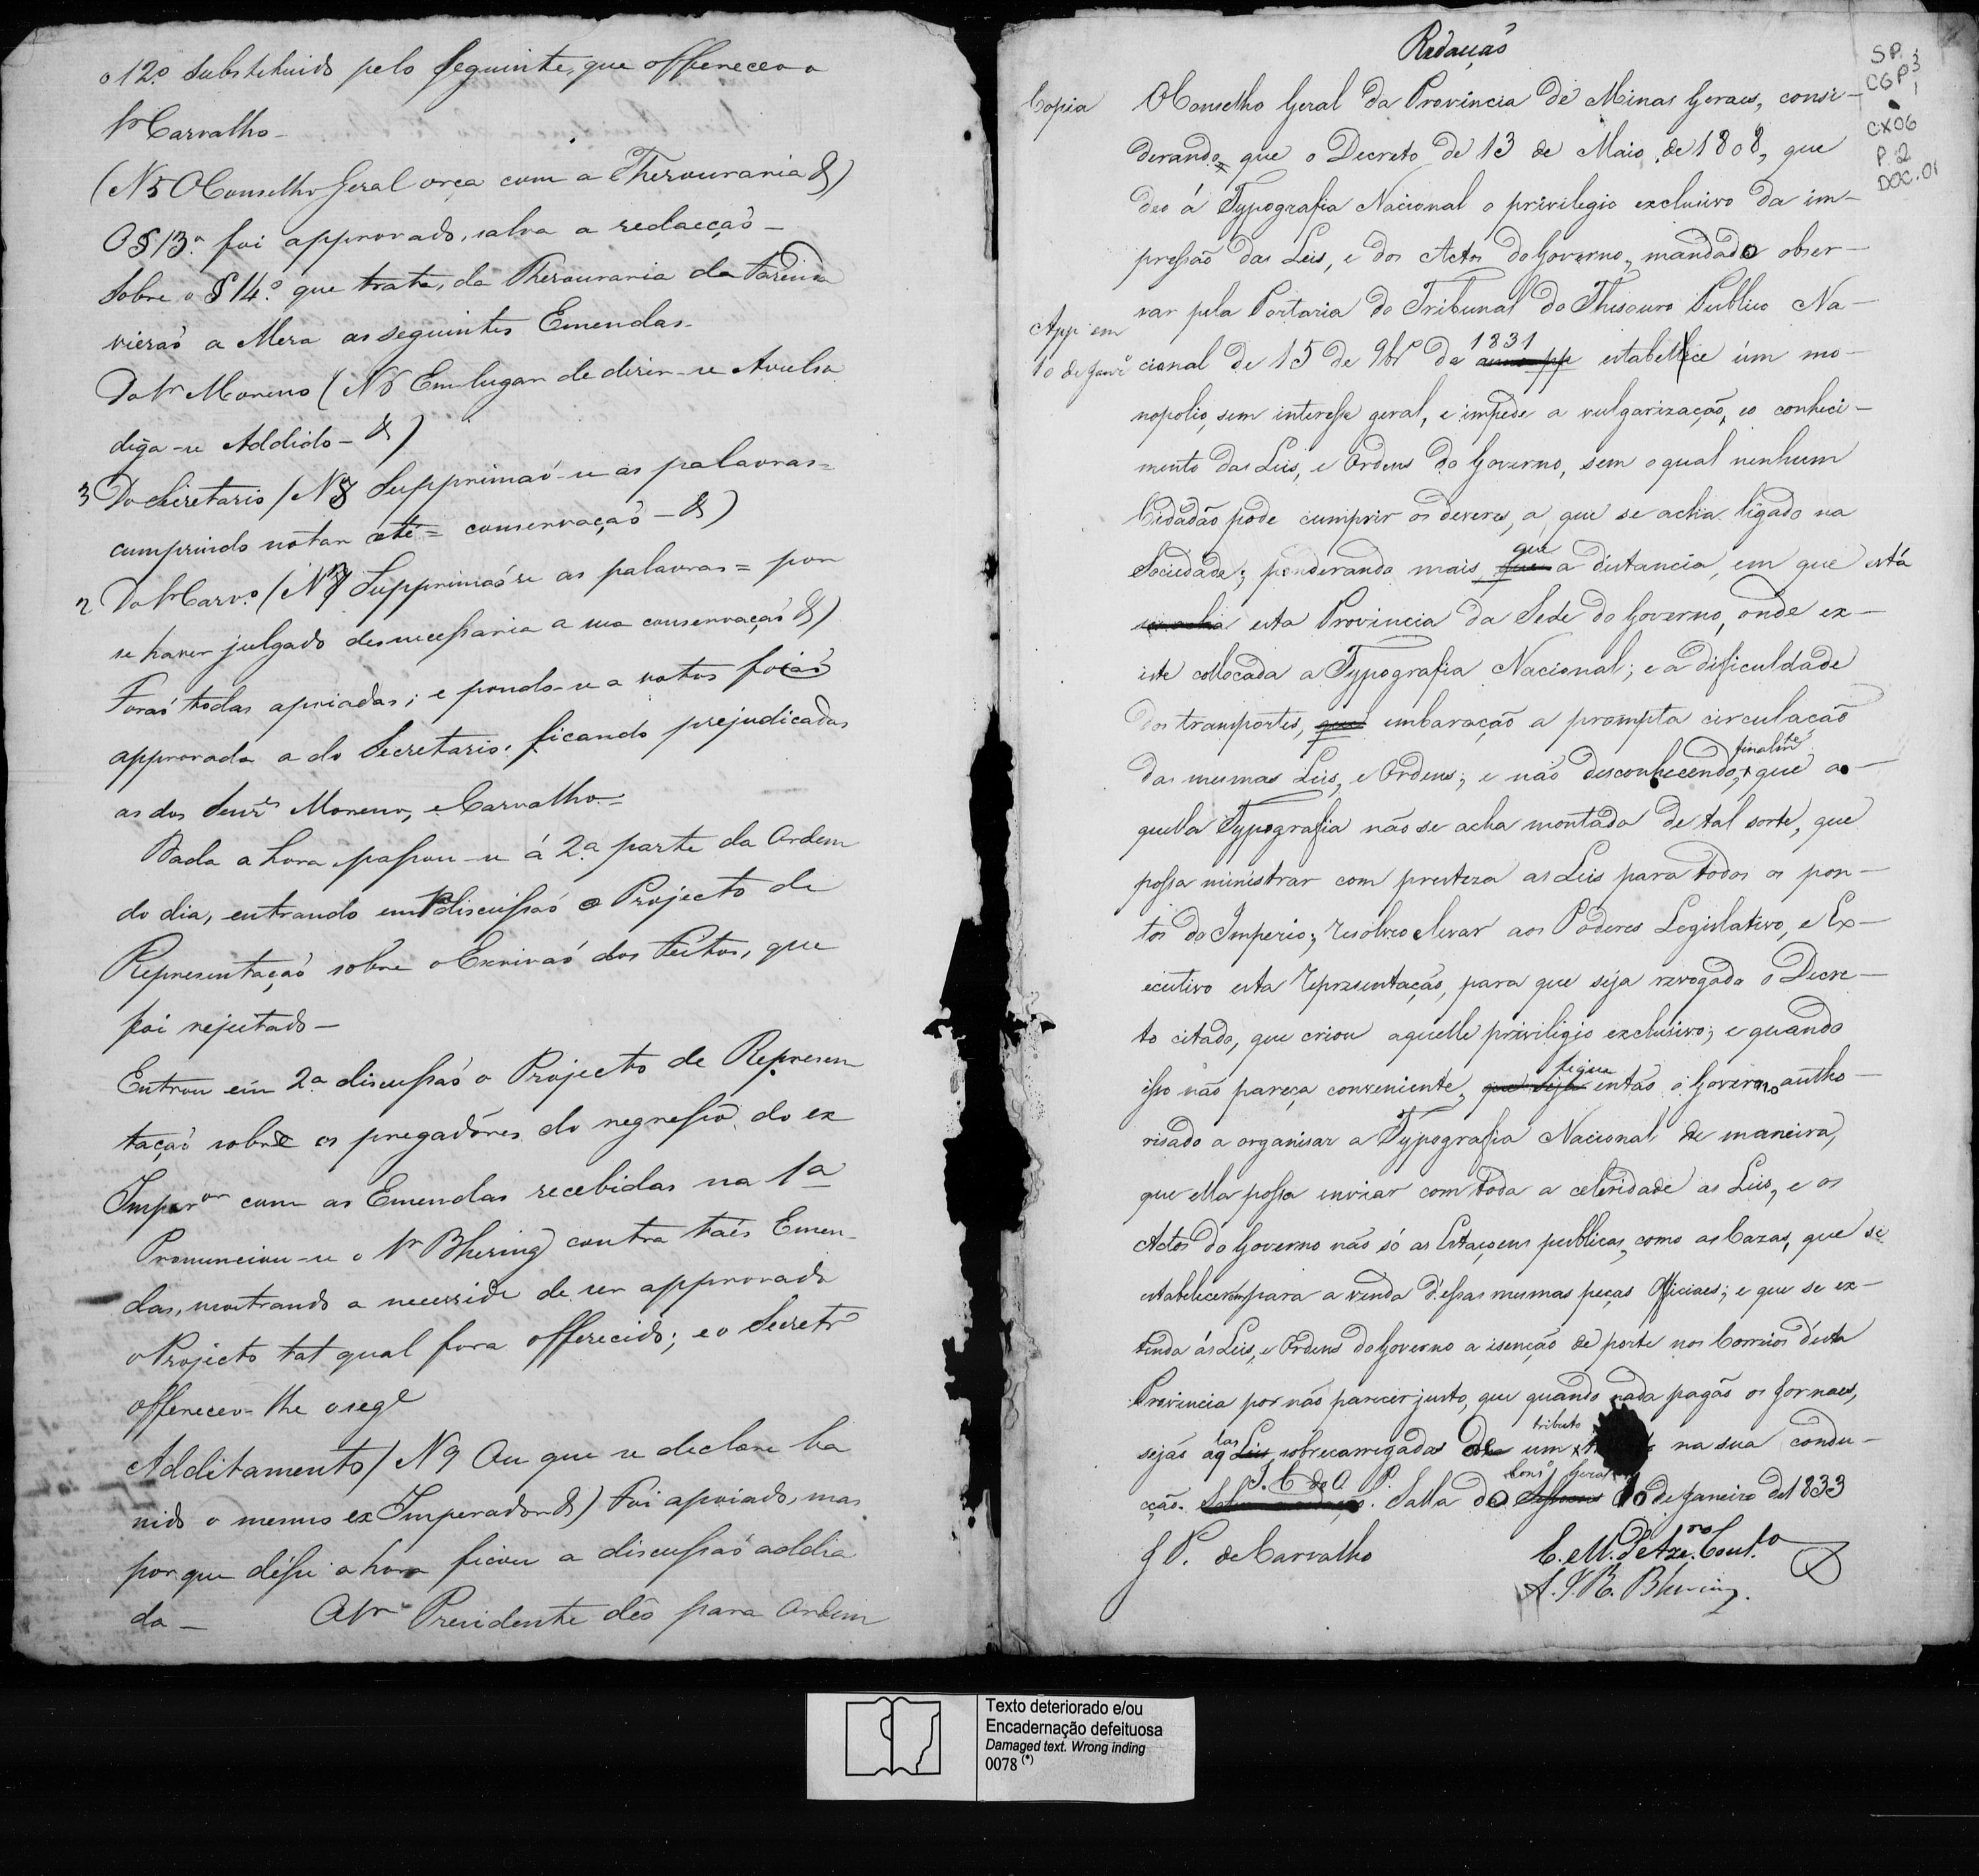 o 12.º substituido pelo seguinte, que offereceo o
Sr Carvalho -
(N 5 O Conselho Geral orça com a Thesouraria &)
O § 13.º foi approvado, salva a redacçaõ -
Sobre o § 14.º que trata da Thesouraria da Fazenda
vieraõ a Mesa as seguintes Emendas -
Do Sr Moreno (N 6 Em lugar de dizer-se Avulso
diga-se Addido - &)
3 Do Secretario (N 8 Supprimaõ-se as palavras =
cumprindo notar até = conservaçaõ - &)
2 Do Sr Carv.º (N 7 Supprimaõ se as palavras = por
se haver julgado desnecessaria a sua conservaçaõ &)
Foraõ todas apoiadas; e pondo-se a votos foi
approvada a do Secretario, ficando prejudicadas
as dos Senr.es Moreno, e Carvalho =
Dada a hora passou-se á 2.ª parte da Ordem
do dia, entrando em discussaõ o Projecto de
Representaçaõ sobre o Escrivaõ dos Feitos, que
foi rejeitado -
Entrou em 2.ª discussaõ o Projecto de Represen
taçaõ sobre os pregadores do regresso do ex
Imper.or com as Emendas recebidas na 1.ª
Pronunciou-se o Sr Bhering contra taes Emen-
das, mostrando a necessid.e de ser approvado
o Projecto tal qual fora offerecido; e o Secretr.
offereceo-lhe o seg.e
Additamento (N 9 Ou que se declare ba
nido o mesmo ex Imperador &) Foi apoiado, mas
porque désse a hora ficou a discussaõ addia
da - O Sr Presidente dêo para Ordem
Redacçaõ
SP.
CGP 3
1
CX06
P. 2
DOC. 01
Copia O Conselho Geral da Provincia de Minas Geraes, consi-
derando que o Decreto de 13 de Maio de 1808, que
deo á Typografia Nacional o privilegio exclusivo da im-
pressão das Leis, e dos Actos do Governo, mandado obser-
var pela Portaria do Tribunal do Thesouro Publico Na-
App em
10 de Janr.º cional de 15 de 9br.º de 1831 estabellece um mo-
nopolio, sem interesse geral, e impede a vulgarização, e o conheci-
mento das Leis, e Ordens do Governo, sem o qual nenhum
Cidadão pode cumprir os deveres, a que se acha ligado na
Sociedade; ponderando mais que a distancia, em que está
esta Provincia da Sede do Governo, onde ex-
iste collocada a Typografia Nacional; e a dificuldade
dos transportes, embaração a prompta circulacão
das mesmas Leis, e Ordens; e não desconhecendo finalm.te que a-
quella Typografia não se acha montada de tal sorte, que
possa ministrar com presteza as Leis para todos os pon-
tos do Imperio; resolveo elevar aos Poderes Legislativo, e Ex-
ecutivo esta representação, para que seja revogado o Decre-
to citado, que criou aquelle priviligio exclusivo; e quando
isso não pareça conveniente, fique então o Governo autho-
risado a organisar a Typografia Nacional de maneira,
que ella possa enviar com toda a celeridade as Leis, e os
Actos do Governo não só as Estaçoens publicas, como as Cazas, que se
estabelecerem para a venda d'essas mesmas peças Officiaes; e que se ex-
tenda ás Leis, e Ordens do Governo a isenção de porte nos Correios d'esta
Provincia por não parecer justo, que quando nada pagão os Jornaes,
sejão aq.las sobrecarregadas de um tributo na sua condu-
cção. S. C. de A. P. Salla do Cons.º Geral 10 de Janeiro de 1833
J P. de Carvalho
C. M. d'Aze.do Cout.º
A. J R. Bhering.
Texto deteriorado e/ou
Encadernação defeituosa
Damaged text. Wrong inding
0078 (*)